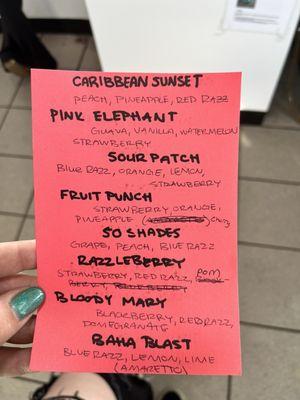 CARIBBEAN SUNSET
PEACH, PINEAPPLE, RED RAZZ
PINK ELEPHANT
GUAVA, VANILLA, WATERMELON
STRAWBERRY
SOUR PATCH
BLUE RAZZ, ORANGE, LEMON,
STRAWBERRY
FRUIT PUNCH
STRAWBERRY, ORANGE,
PINEAPPLE Cherry
50 SHADES
GRAPE, PEACH, BLUE RAZZ
RAZZLEBERRY
STRAWBERRY, RED RAZZ, POM
BLOODY MARY
BLACKBERRY, RED RAZZ,
POMEGRANATE
BAHA BLAST
BLUE RAZZ, LEMON, LIME
(AMARETTO)